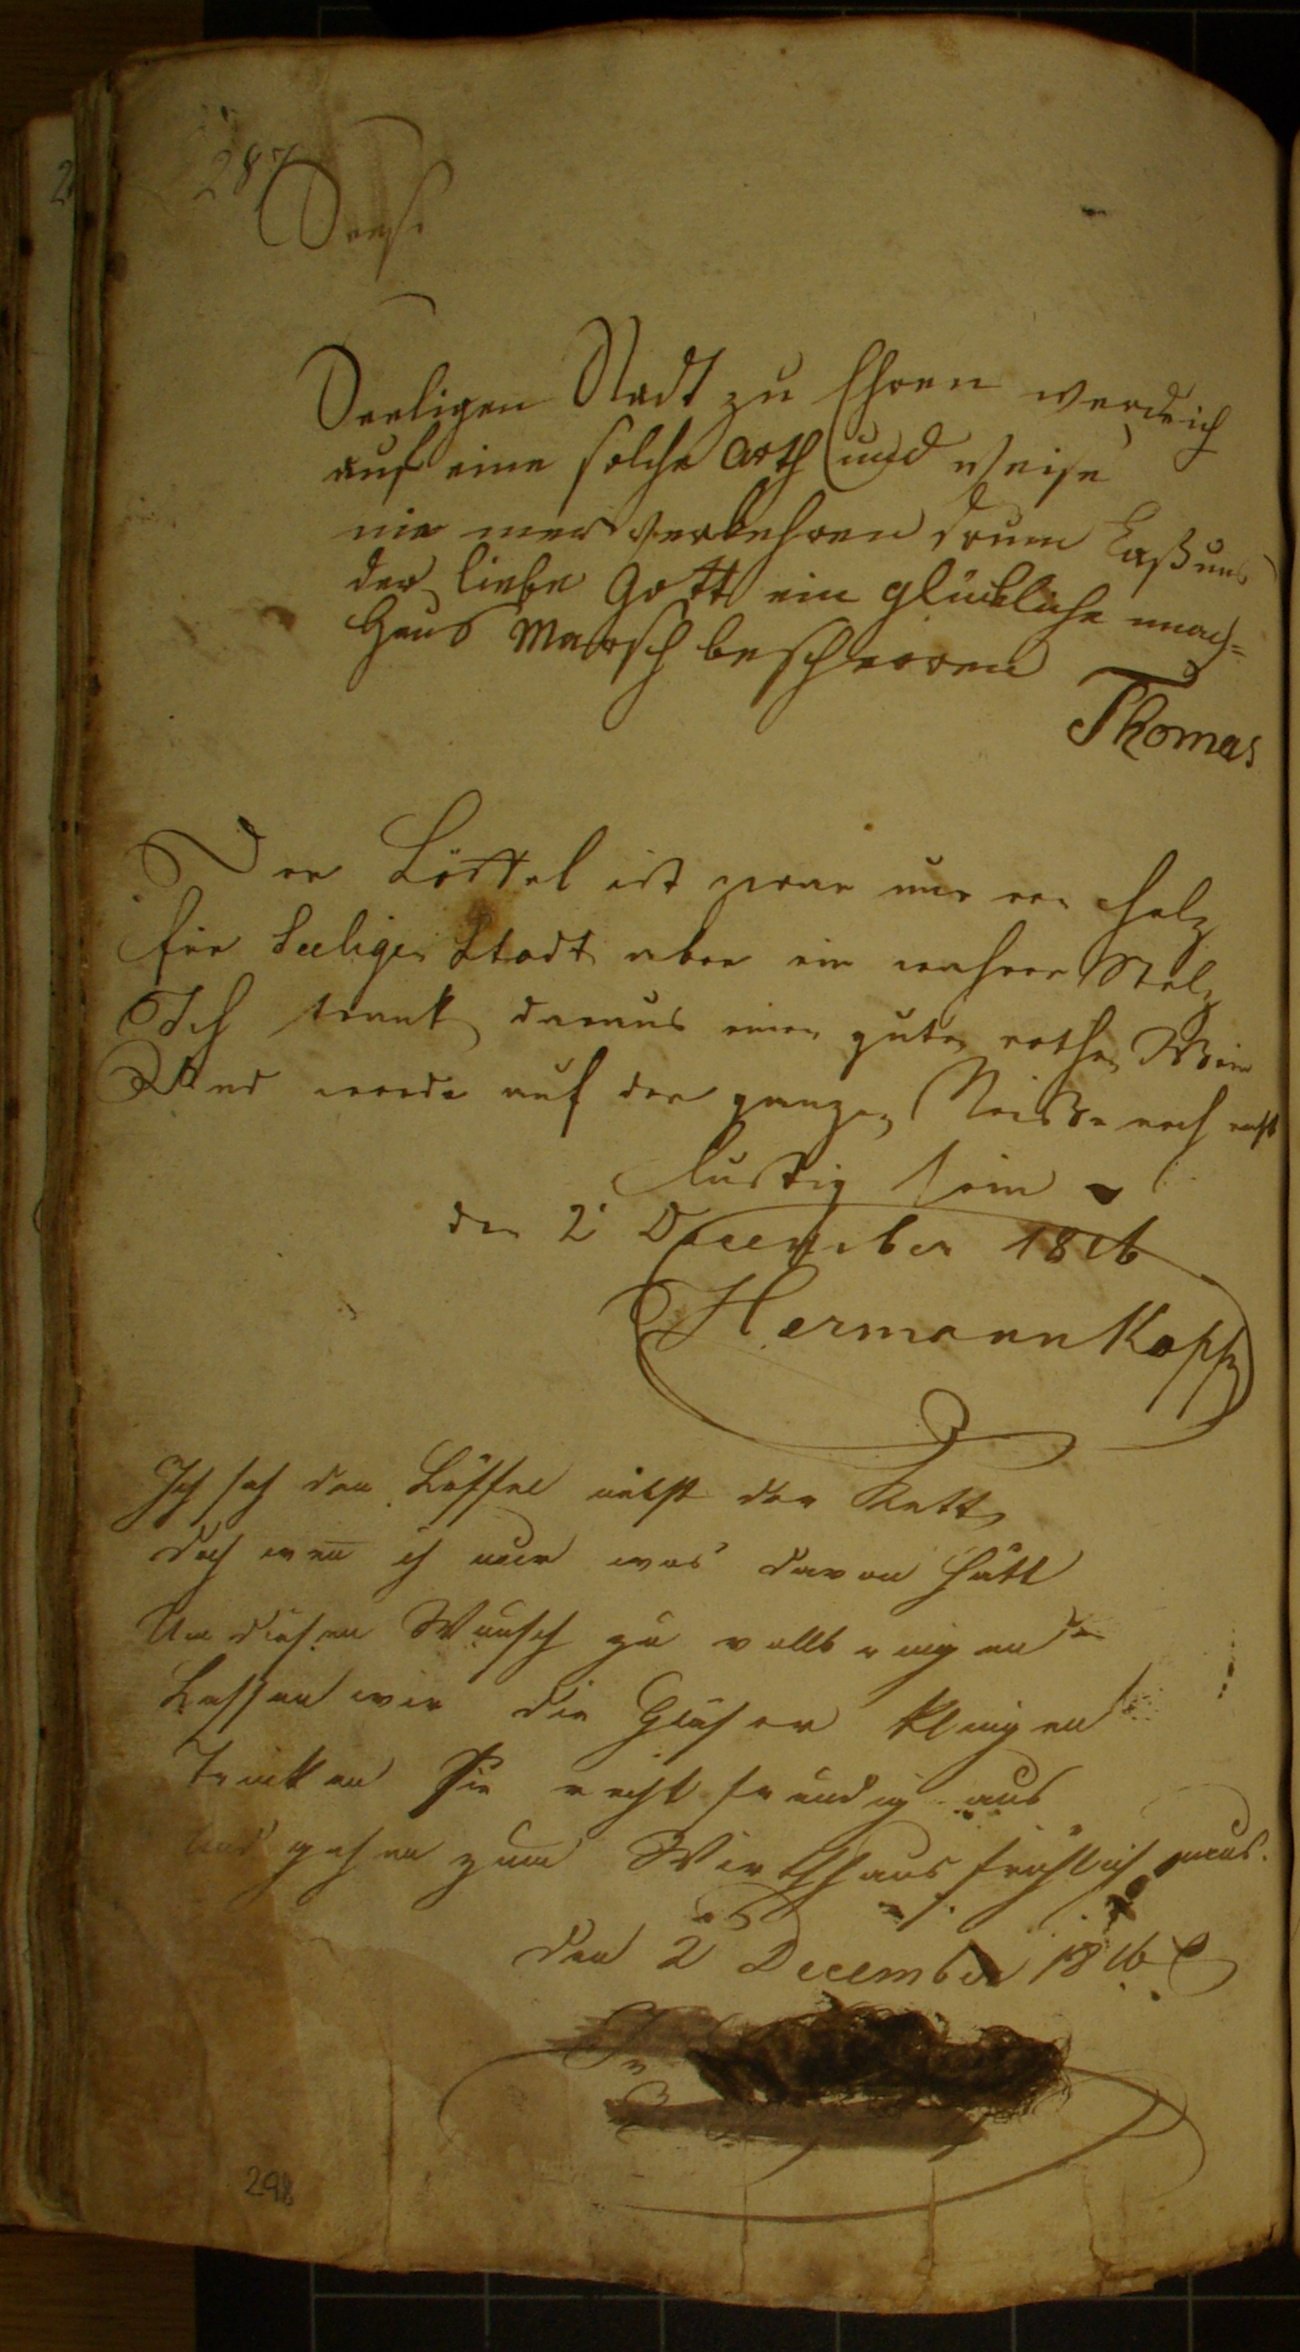 287
Seeligen Stadt zu Ehren werde ich
auf eine solche Arth und Weise
nie mer verkehren drum Laß uns
der liebe Gott ein glückliche nach=
Haus Marsch bescherren
Thomas
Der Löffel ist zwar nur von Holz
für Seeligen Stadt aber ein wahrer Stolz
Ich trank daraus einen guten rothen Wein
Und werde auf der ganzen Reise noch recht
lustig sein
den 2 December 1816
Hermann Kopp
Ich sah den Löffel nebst der Kett
doch wen ich nur was davon hätt
Um diesen Wunsch zu vollbringen
Lassen wir die Gläser klingen
Trinken Sie recht freudig aus
und gehen zum Wirthhaus fröhlich naus.
den 2 December 1816
298